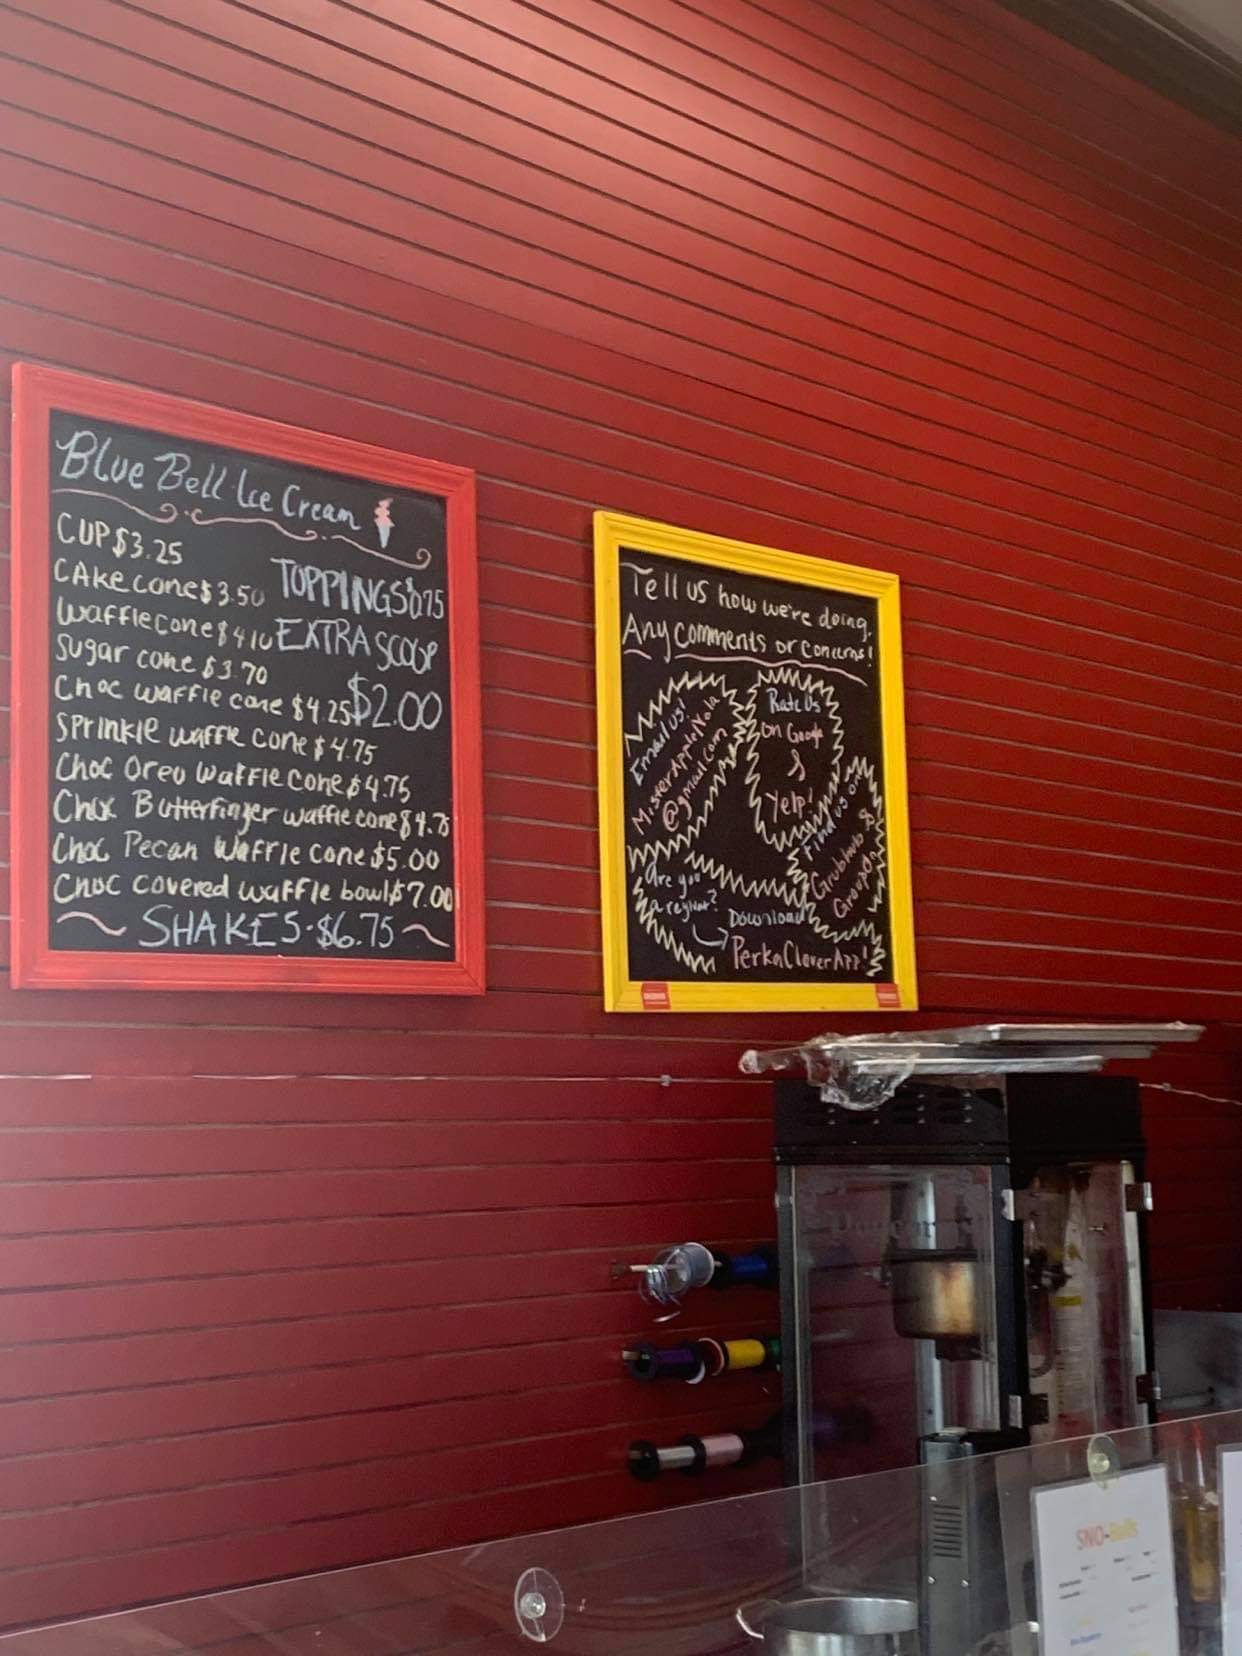 Blue Bell Ice Cream
CUP $3.25
CAKe cone $3.50
waffle cone $4.10
Sugar cone $3.70
Choc waffle cone $4.25
SPrinkle waffle cone $4.75
Choc Oreo waffle cone $4.75
Choc Butterfinger waffle cone $4.75
Choc Pecan Waffle cone $5.00
Choc covered waffle bowl $7.00
SHAKES-$6.75
TOPPINGS $0.75
EXTRA SCOOP
$2.00
Tell us how we're doing.
Any comments or concerns!
Email us!
MisterAppleNola
@gmail.com
Rate Us
on Google
&
Yelp!
Find us on
Grubhub &
Are you
a regular?
Download
Perka Clover App!
SNO-Balls